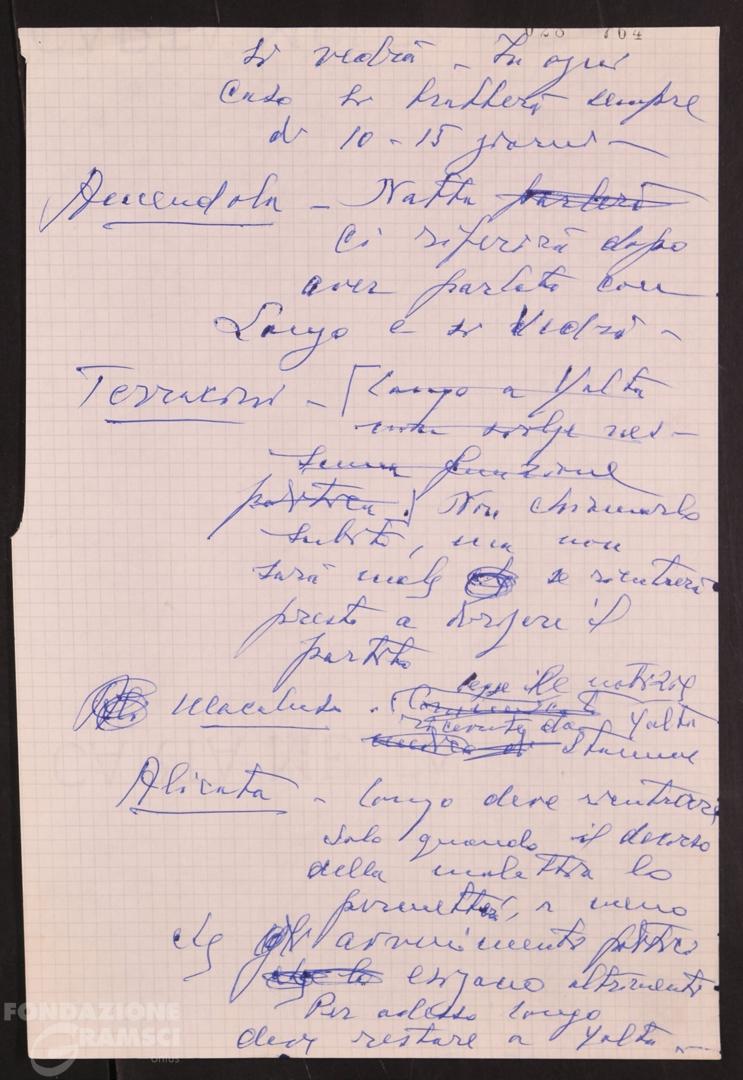 028 764
si vedrà - In ogni
caso si tratterà sempre
di 10 - 15 giorni -
Amendola - Natta parlerà
ci riferirà dopo
aver parlato con
Longo e si vedrà -
Terracini - [Longo a Yalta
non svolge nes-
suna funzione
politica.] Non chiamarlo
subito, ma non
sarà male se rientrerà
presto a dirigere il
partito
legge le notizie
Macaluso - (Comunicat
ricevute da Yalta
Stamane
Alicata - Longo deve rientrare
solo quando il decorso
della malattia lo
permetterà, a meno
che gli avvenimenti politici
esigano altrimenti.
Per adesso Longo
deve restare a Yalta -
FONDAZIONE
GRAMSCI
onlus